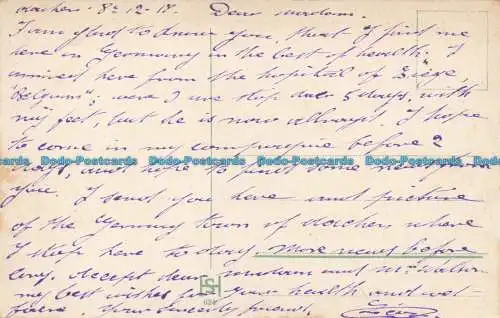 Aachen. 8-12-18. Dear madam.
I am glad to know you, that I find me
here in Germany in the best of health. I
arrived here from the hospital of "Liege,
Belgium", were I use stop due 5 days, with
my feet, but he is now allright. I hope
to come in my compagnie before 2
days, and hope to find some news from
you. I send you here and picture
of the Germany town of Aachen where
I stop here to day. More news before
long. Accept dear madam and Mr Walton
my best wishes for your health and wel-
faire. Your sincerely friend.
Dodo-Postcards Dodo-Postcards Dodo-Postcards Dodo-Postcards Dodo-Postcards Dodo-Postcards